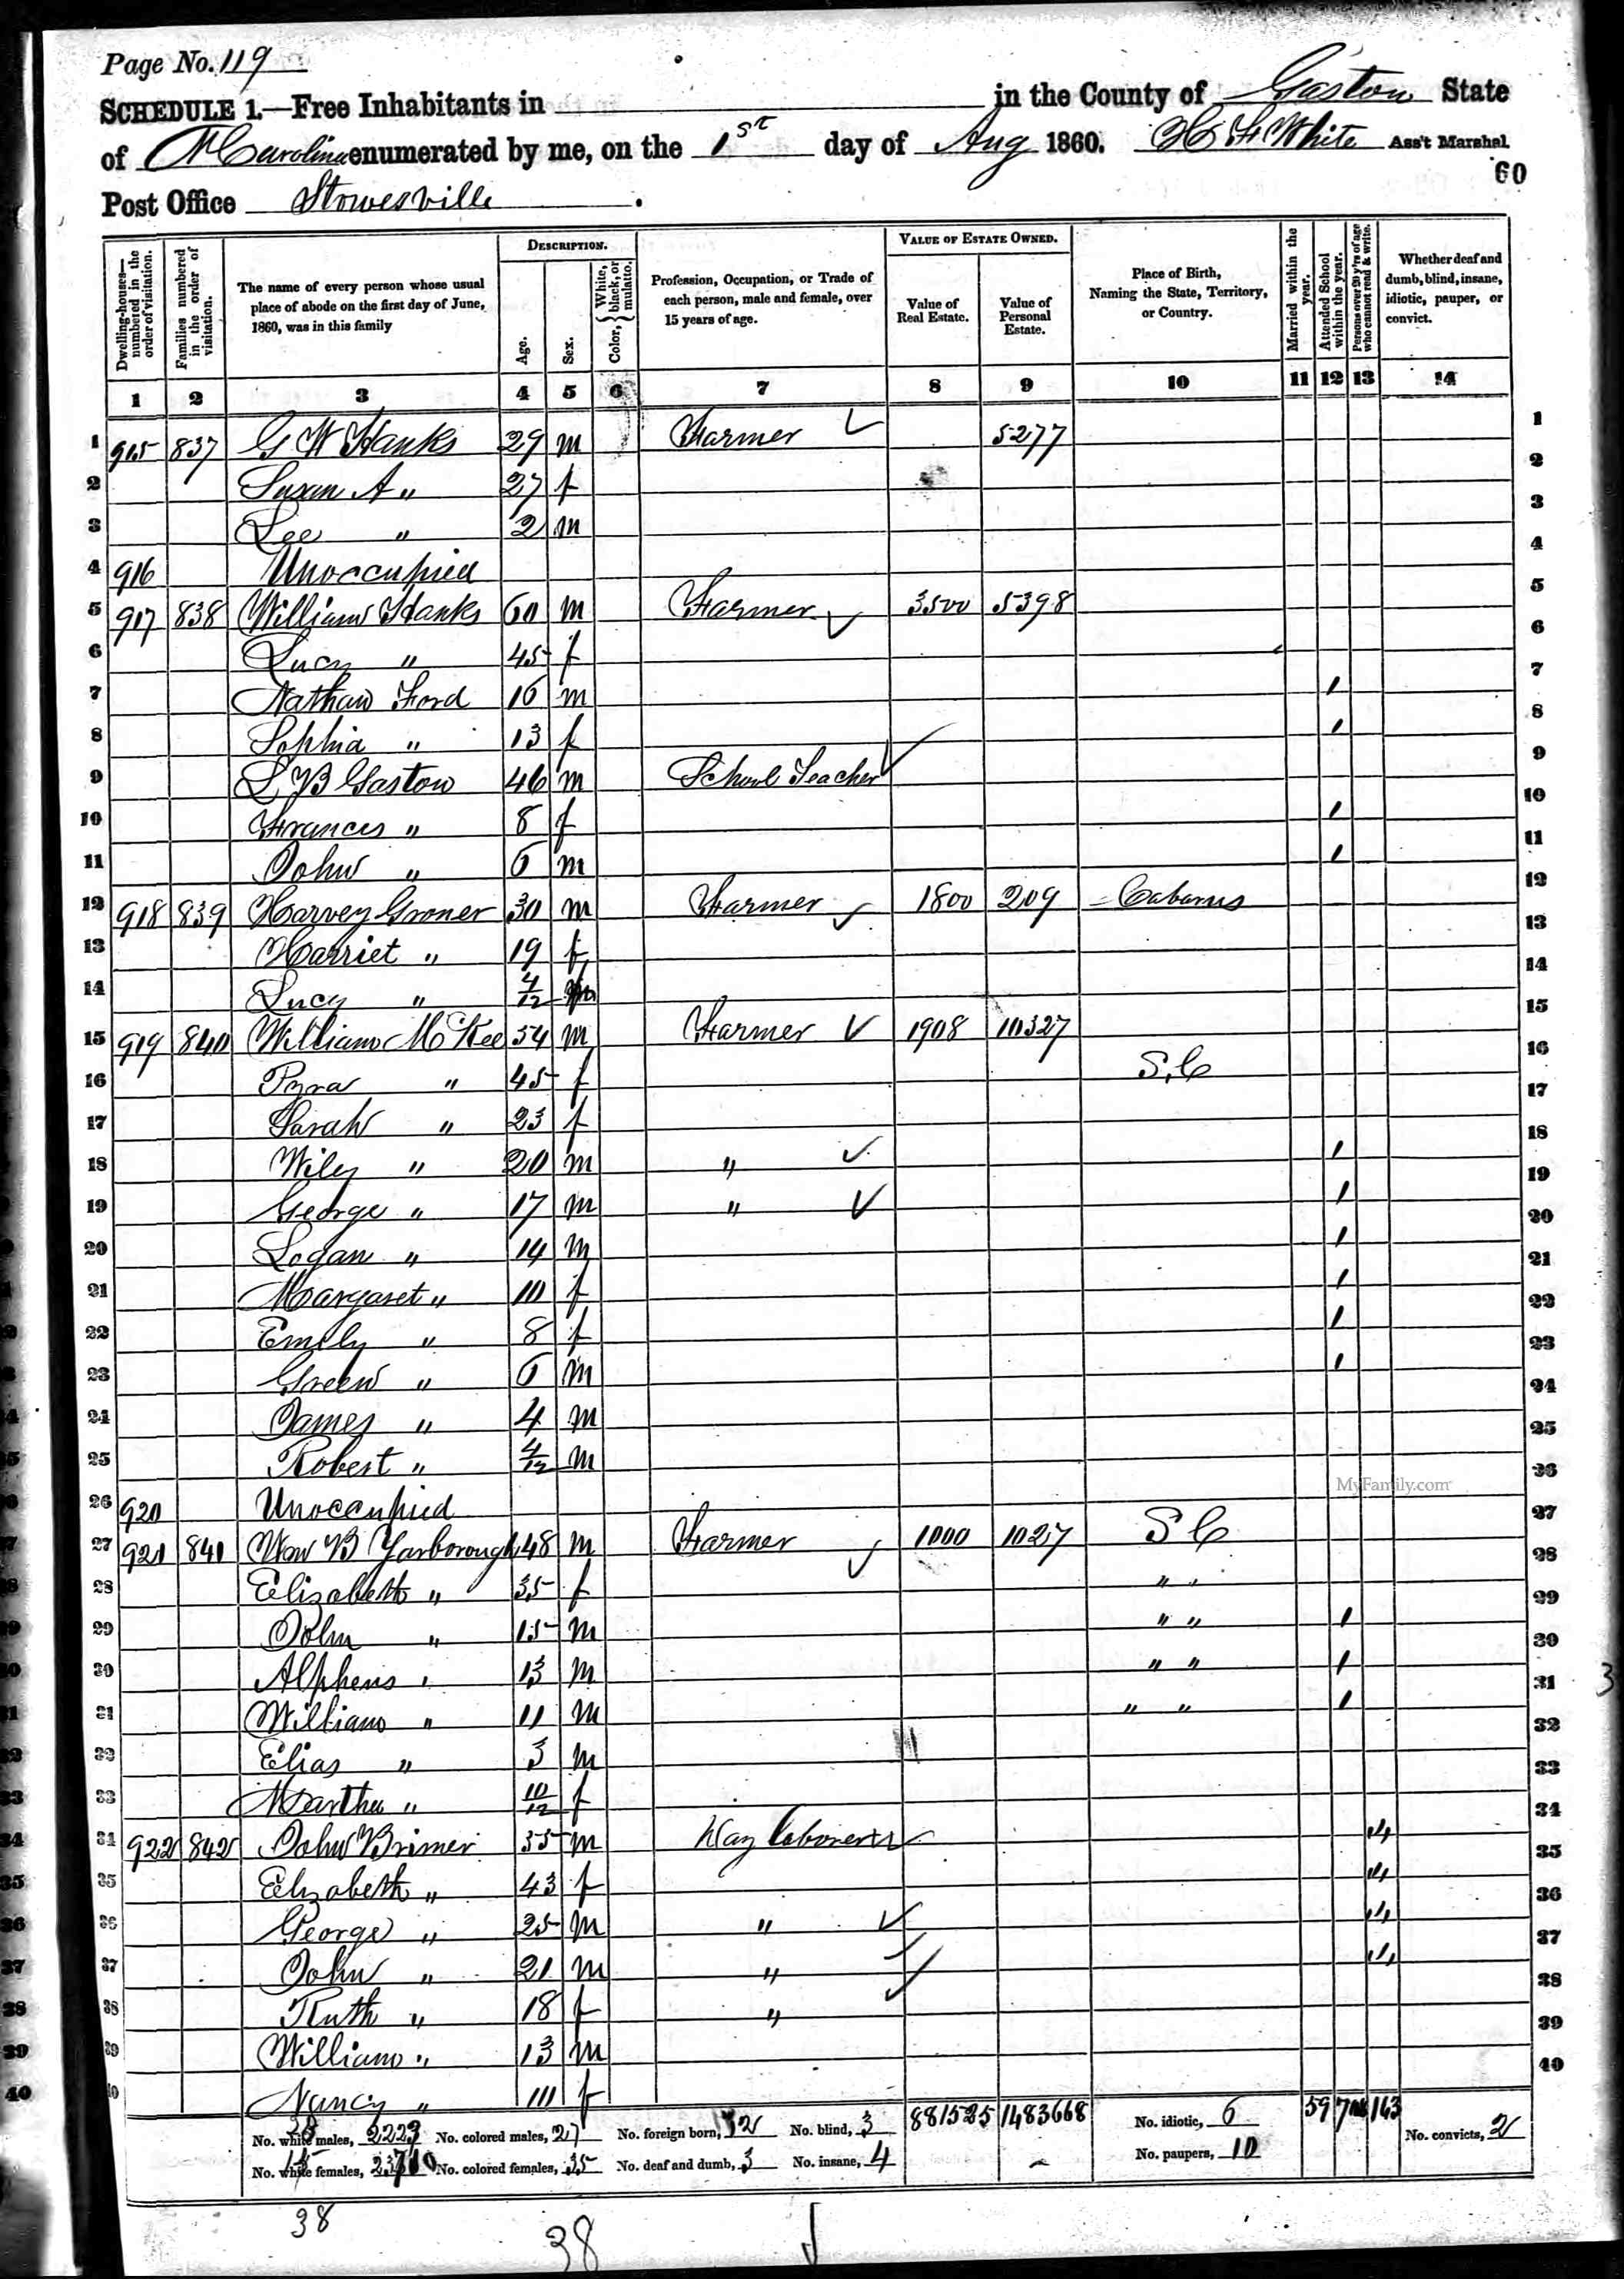 Page No. 119
SCHEDULE 1.—Free Inhabitants in in the County of Gaston State
of N Carolina enumerated by me, on the 1st day of Aug 1860. White Ass't Marshal.
60
Post Office Stowesville .
Dwelling-houses—numbered in the order of visitation. Families numbered in the order of visitation. The name of every person whose usual place of abode on the first day of June, 1860, was in this family DESCRIPTION. Age. Sex. Color, { White, black, or mulatto. Profession, Occupation, or Trade of each person, male and female, over 15 years of age. VALUE OF ESTATE OWNED. Value of Real Estate. Value of Personal Estate. Place of Birth, Naming the State, Territory, or Country. Married within the year. Attended School within the year. Persons over 20 y'rs of age who cannot read & write. Whether deaf and dumb, blind, insane, idiotic, pauper, or convict.
1 2 3 4 5 6 7 8 9 10 11 12 13 14
1 915 837 G W Hanks 29 m Farmer ✓ 5277 1
2 Susan A " 27 f 2
3 Lee " 2 m 3
4 916 Unoccupied 4
5 917 838 William Hanks 60 m Farmer ✓ 3500 5398 5
6 Lucy " 45 f 6
7 Nathan Ford 16 m / 7
8 Sophia " 13 f / 8
9 L B Gaston 46 m School Teacher ✓ 9
10 Frances " 8 f / 10
11 John " 6 m / 11
12 918 839 Harvey Groner 30 m Farmer ✓ 1800 209 Cabarrus 12
13 Harriet " 19 f 13
14 Lucy " 4/12 14
15 919 840 William McKee 54 m Farmer ✓ 1908 10327 15
16 " 45 f S.C 16
17 Sarah " 23 f 17
18 Wiley " 20 m " ✓ / 18
19 George " 17 m " ✓ / 19
20 Logan " 14 m / 20
21 Margaret " 10 f / 21
22 Emily " 8 f / 22
23 Green " 6 m / 23
24 James " 4 m 24
25 Robert " 4/12 m 25
MyFamily.com
26 920 Unoccupied 26
27 921 841 Wm B Yarborough 48 m Farmer ✓ 1000 1027 S C 27
28 Elizabeth " 35 f " " 28
29 John " 15 m " " / 29
30 Alpheus " 13 m " " / 30
31 William " 11 m " " / 31
32 Elias " 3 m 32
33 Martha " 10/12 f 33
34 922 842 John Brimer 55 m Day Laborer ✓ 34
35 Elizabeth " 43 f 35
36 George " 25 m " ✓ 36
37 John " 21 m " ✓ 37
38 Ruth " 18 f " ✓ 38
39 William " 13 m 39
40 Nancy " 10 f 40
No. white males, 2223 No. colored males, 27 No. foreign born, 32 No. blind, 3 881525 1483668 No. idiotic, 6 59 163 No. convicts, 2
No. white females, No. colored females, 35 No. deaf and dumb, 3 No. insane, 4 No. paupers, 10
38
38